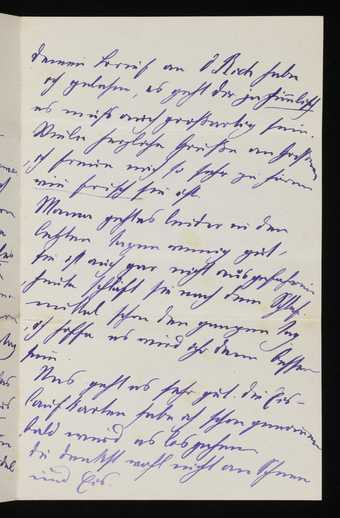 deinen Brief an O Rich habe
ich gelesen, es geht dir ja
es muß auch großartig sein.
Viele herzliche Grüße an
ich freue mich so sehr zu hören
wie frisch sie ist.
Mama geht es leider in den
letzten Tagen wenig gut,
sie ist auch gar nicht ausgefahren
heute schläft sie nach dem Schlaf-
mittel schon den ganzen Tag
ich hoffe es wird ihr dann besser
sein.
Uns geht es sehr gut. die Eis-
laufkarten habe ich schon genommen
bald wird es losgehen
Du denkst wohl nicht an Schnee
und Eis.